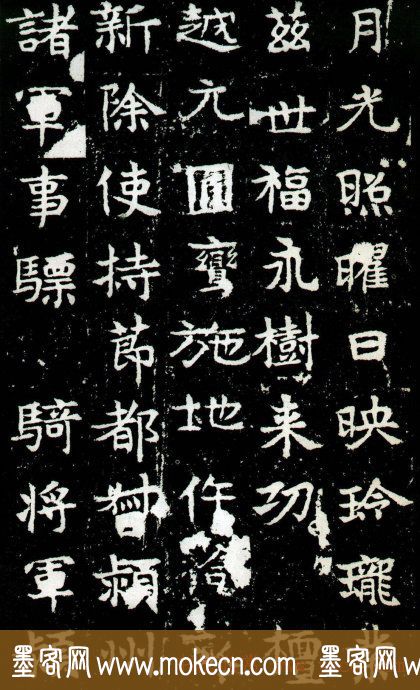 月光照曜日映玲瓏
茲世福永樹来功檀
越元圓施地作塔
新除使持節都督潁州
諸軍事驃騎将軍
墨客网 www.mokecn.com 墨客网